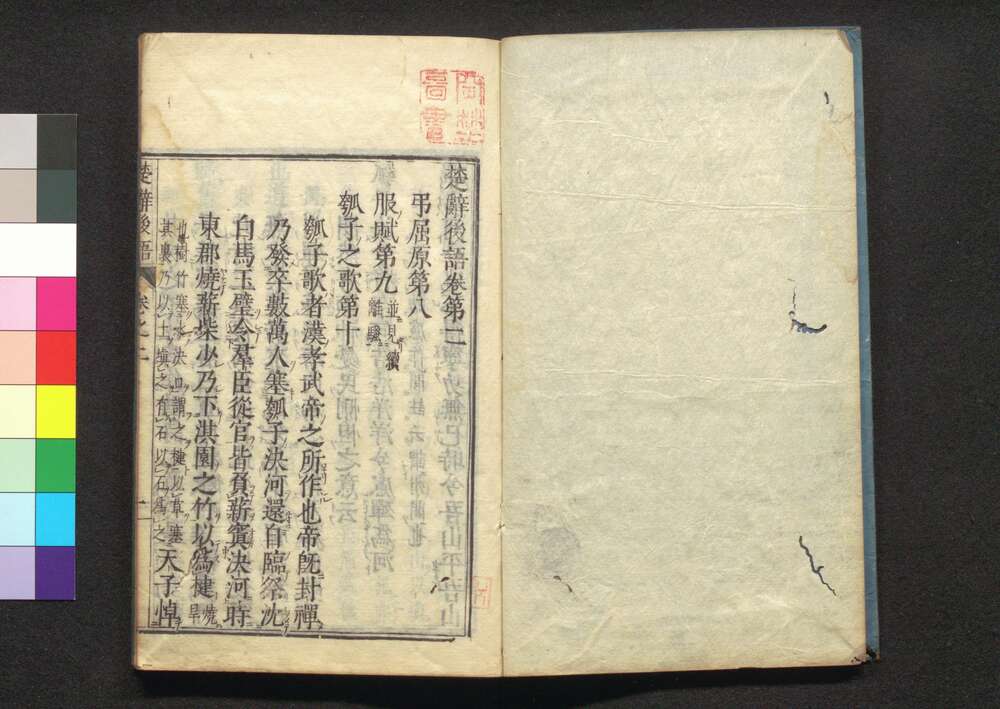 楚辭後語卷第二
弔屈原第八
服賦第九 並見續離騷
瓠子之歌第十
瓠子歌者漢孝武帝之所作也帝旣封禪
乃發卒數萬人塞瓠子決河還自臨祭沈
白馬玉璧令羣臣從官皆負薪窴決河時
東郡燒薪柴少乃下淇園之竹以爲楗
樹竹塞水決口謂之楗以草塞
其裏乃以土塡之有石以石爲之天子悼
楚辭後語 卷之二